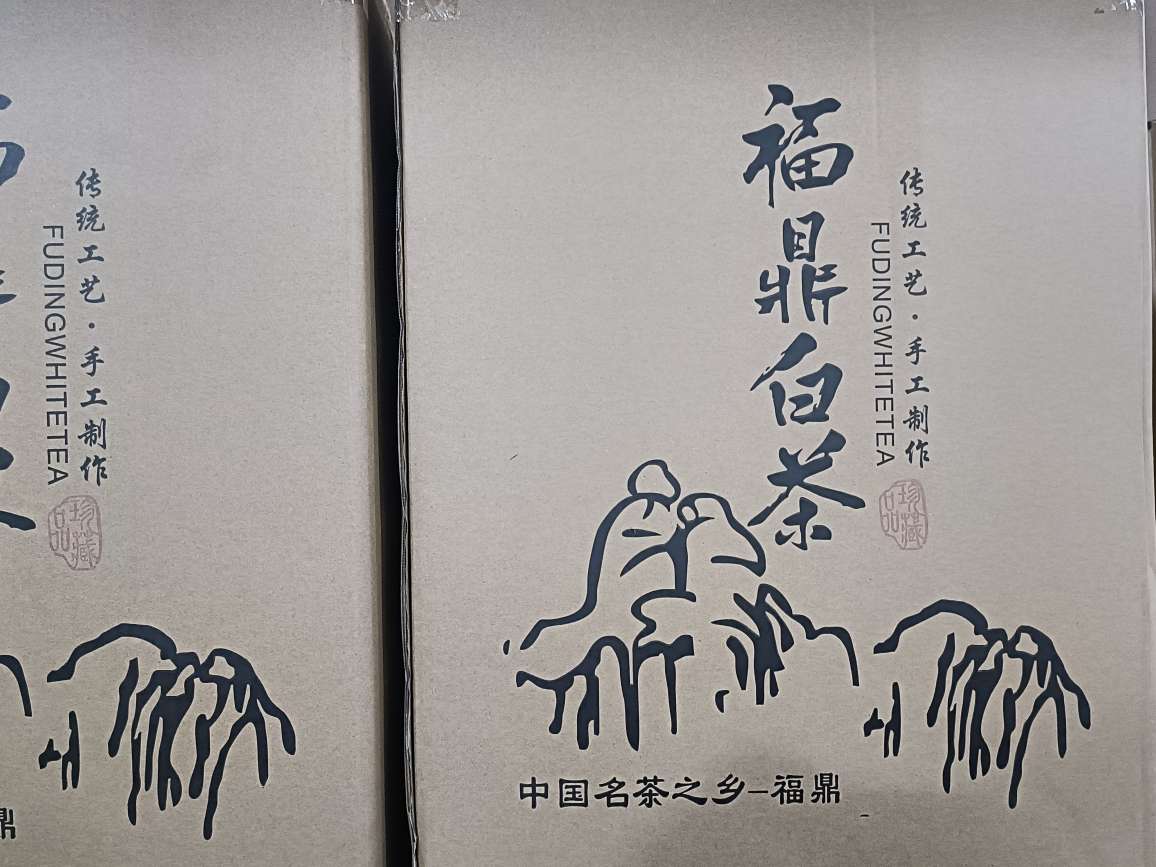 传统工艺·手工制作
FUDINGWHITETEA
珍藏品
鼎
福鼎白茶
传统工艺·手工制作
FUDINGWHITETEA
珍藏品
中国名茶之乡-福鼎